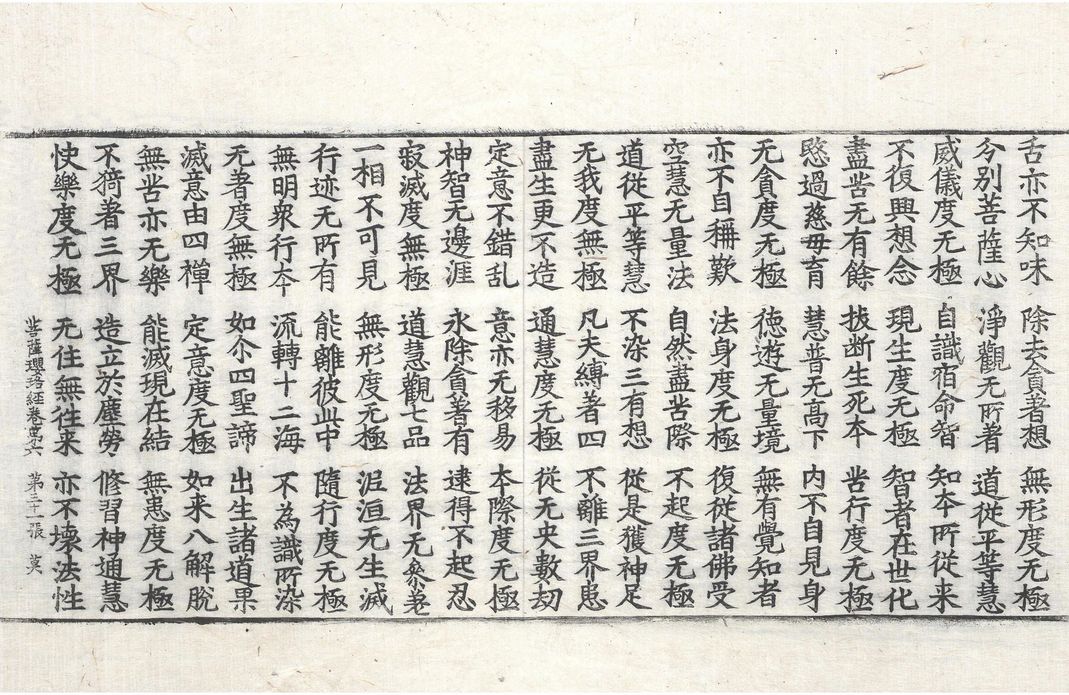 舌亦不知味 除去貪著想 無形度无極
分別菩薩心 淨觀无所著 道從平等慧
威儀度无極 自識宿命智 知本所從来
不復興想念 現生度无極 智者在世化
盡苦无有餘 拔断生死本 苦行度无極
愍過慈母育 慧普无高下 内不自見身
无貪度无極 德遊无量境 無有覺知者
亦不自稱歎 法身度无極 復從諸佛受
空慧无量法 自然盡苦際 不起度无極
道從平等慧 不染三有想 從是獲神足
无我度無極 凡夫縛著四 不離三界患
盡生更不造 通慧度无極 從无央數劫
定意不錯乱 意亦无移易 本際度无極
神智无邊涯 永除貪著有 逮得不起忍
寂滅度無極 道慧觀七品 法界无叅差
一相不可見 無形度无極 泥洹无生滅
行迹无所有 能離彼此中 隨行度无極
無明衆行本 流轉十二海 不為識所染
无著度無極 如尒四聖諦 出生諸道果
滅意由四禪 定意度无極 如来八解脫
無苦亦无樂 能滅現在結 無恚度无極
不猗著三界 造立於塵勞 修習神通慧
快樂度无極 无住無往来 亦不壞法性
菩薩瓔珞経卷第六 第三十一張 莫